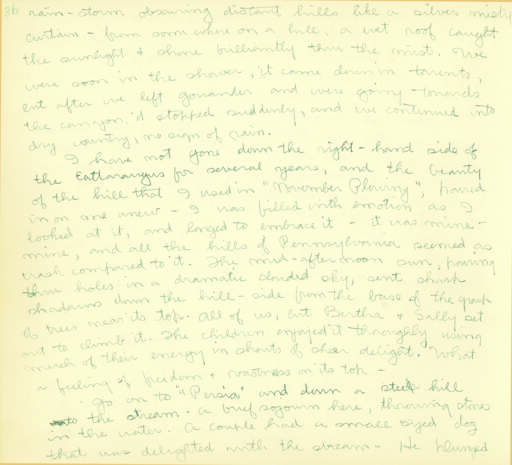 86 rain-storm obscuring distant hills like a silver misty
curtain - from somewhere on a hill, a wet roof caught
the sunlight & shone brilliantly thru the mist. We
were soon in the shower, it came down in torrents,
but after we left Gowanda and were going towards
the canyon, it stopped suddenly, and we continued into
dry country, no sign of rain.
I have not gone down the right-hand side of
the Cattaraugus for several years, and the beauty
of the hill that I used in "November Plowing", poured
in on one anew - I was filled with emotion as I
looked at it, and longed to embrace it - it was mine -
mine, and all the hills of Pennsylvania seemed as
trash compared to it. The mid-afternoon sun, pouring
thru holes in a dramatic clouded sky, sent sharp
shadows down the hill-side from the base of the group
of trees near its top. All of us, but Bertha & Sally set
out to climb it. The children enjoyed it thoroughly using
much of their energy in shouts of sheer delight. What
a feeling of freedom & vastness on its top -
Go on to "Persia" and down a steep hill
to the stream. A brief sojourn here, throwing stones
in the water. A couple had a small sized dog
that was delighted with the stream - He plunged